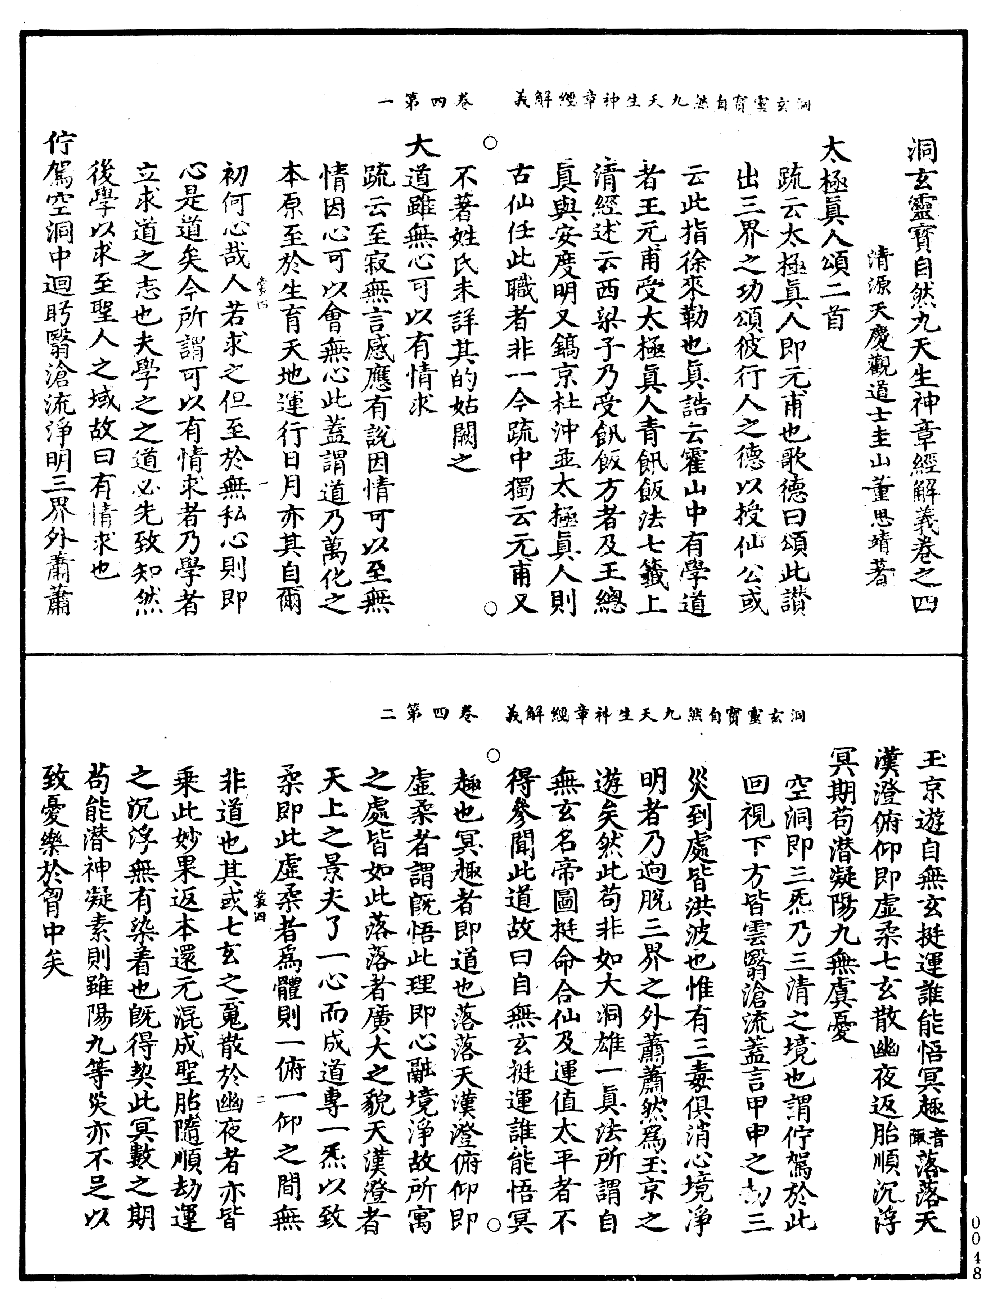 洞玄靈寶自然九天生神章經解義　卷四第一
洞玄靈寶自然九天生神章經解義卷之四
清源天慶觀道士圭山董思靖著
太極眞人頌二首
疏云太極眞人即元甫也歌德曰頌此讃
出三界之功頌彼行人之德以授仙公或
云此指徐來勒也眞誥云霍山中有學道
者王元甫受太極眞人青飢飯法七籤上
清經述云西梁子乃受飢飯方者及王總
眞與安度明又鎬京杜沖並太極眞人則
古仙任此職者非一今疏中獨云元甫又
不著姓氏未詳其的姑闕之
大道雖無心可以有情求
疏云至寂無言感應有說因情可以至無
情因心可以會無心此蓋謂道乃萬化之
本原至於生育天地運行日月亦其自爾
初何心哉人若求之但至於無私心則即
心是道矣今所謂可以有情求者乃學者
立求道之志也夫學之之道必先致知然
後學以求至聖人之域故曰有情求也
佇駕空洞中迴眄翳滄流淨明三界外蕭蕭
洞玄靈寶自然九天生神章經解義　卷四第二
玉京遊自無玄挺運誰能悟冥趣音諏落落天
漢澄俯仰即虛柔七玄散幽夜返胎順沉浮
冥期苟潜凝陽九無虞憂
空洞即三炁乃三清之境也謂佇駕於此
回視下方皆雲翳滄流蓋言甲申之劫三
災到處皆洪波也惟有三毒俱消心境淨
明者乃迥脫三界之外蕭蕭然爲玉京之
遊矣然此苟非如大洞雄一眞法所謂自
無玄名帝圖挺命合仙及運值太平者不
得參聞此道故曰自無玄挺運誰能悟冥
趣也冥趣者即道也落落天漢澄俯仰即
虛柔者謂旣悟此理即心融境淨故所寓
之處皆如此落落者廣大之貌天漢澄者
天上之景夫了一心而成道專一炁以致
柔即此虛柔者爲體則一俯一仰之間無
非道也其或七玄之䰟散於幽夜者亦皆
乘此妙果返本還元混成聖胎隨順劫運
之沉浮無有染着也旣得契此冥數之期
苟能潜神凝素則雖陽九等災亦不足以
致憂樂於胷中矣
0048